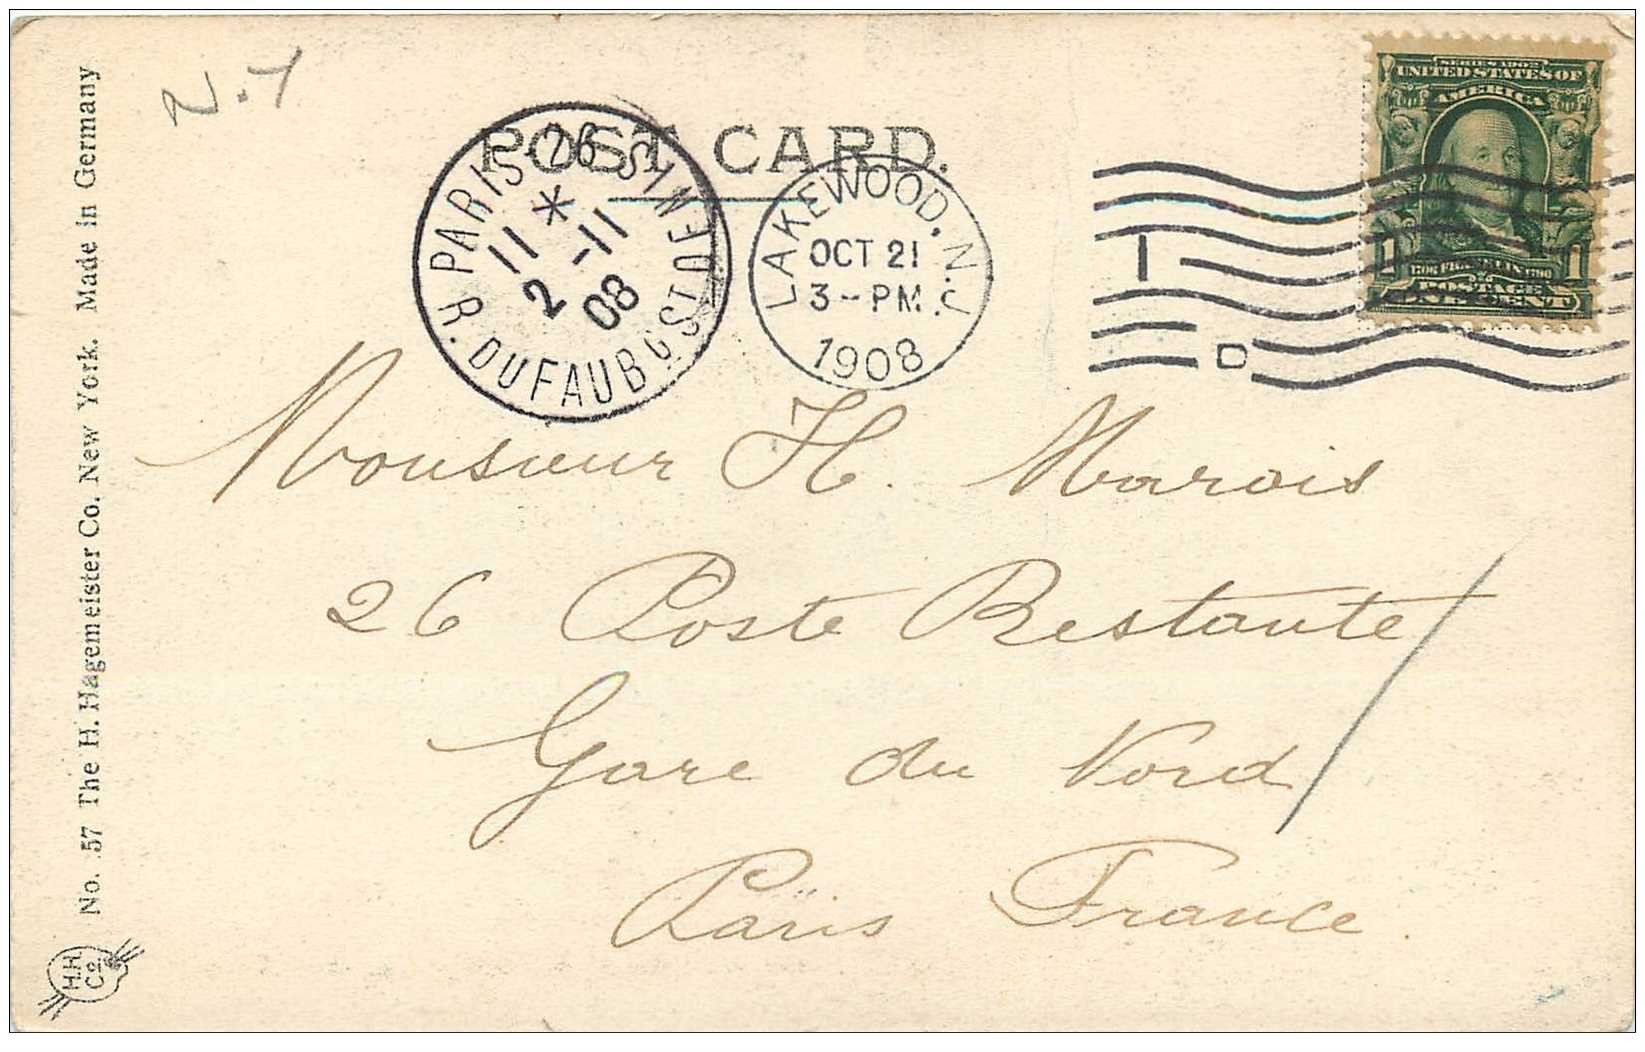 N.Y
POST CARD.
PARIS-26
R. DU FAUBG ST DENIS
11 * -11
2 08
LAKEWOOD, N.J.
OCT 21
3-PM
1908
1
D
SERIES 1902
UNITED STATES OF
AMERICA
1 1706 FRANKLIN 1790 1
POSTAGE
ONE CENT
Monsieur H. Marois
26 Poste Restante
Gare du Nord
Paris France.
No. 57 The H. Hagemeister Co. New York. Made in Germany
H.H.
Co.